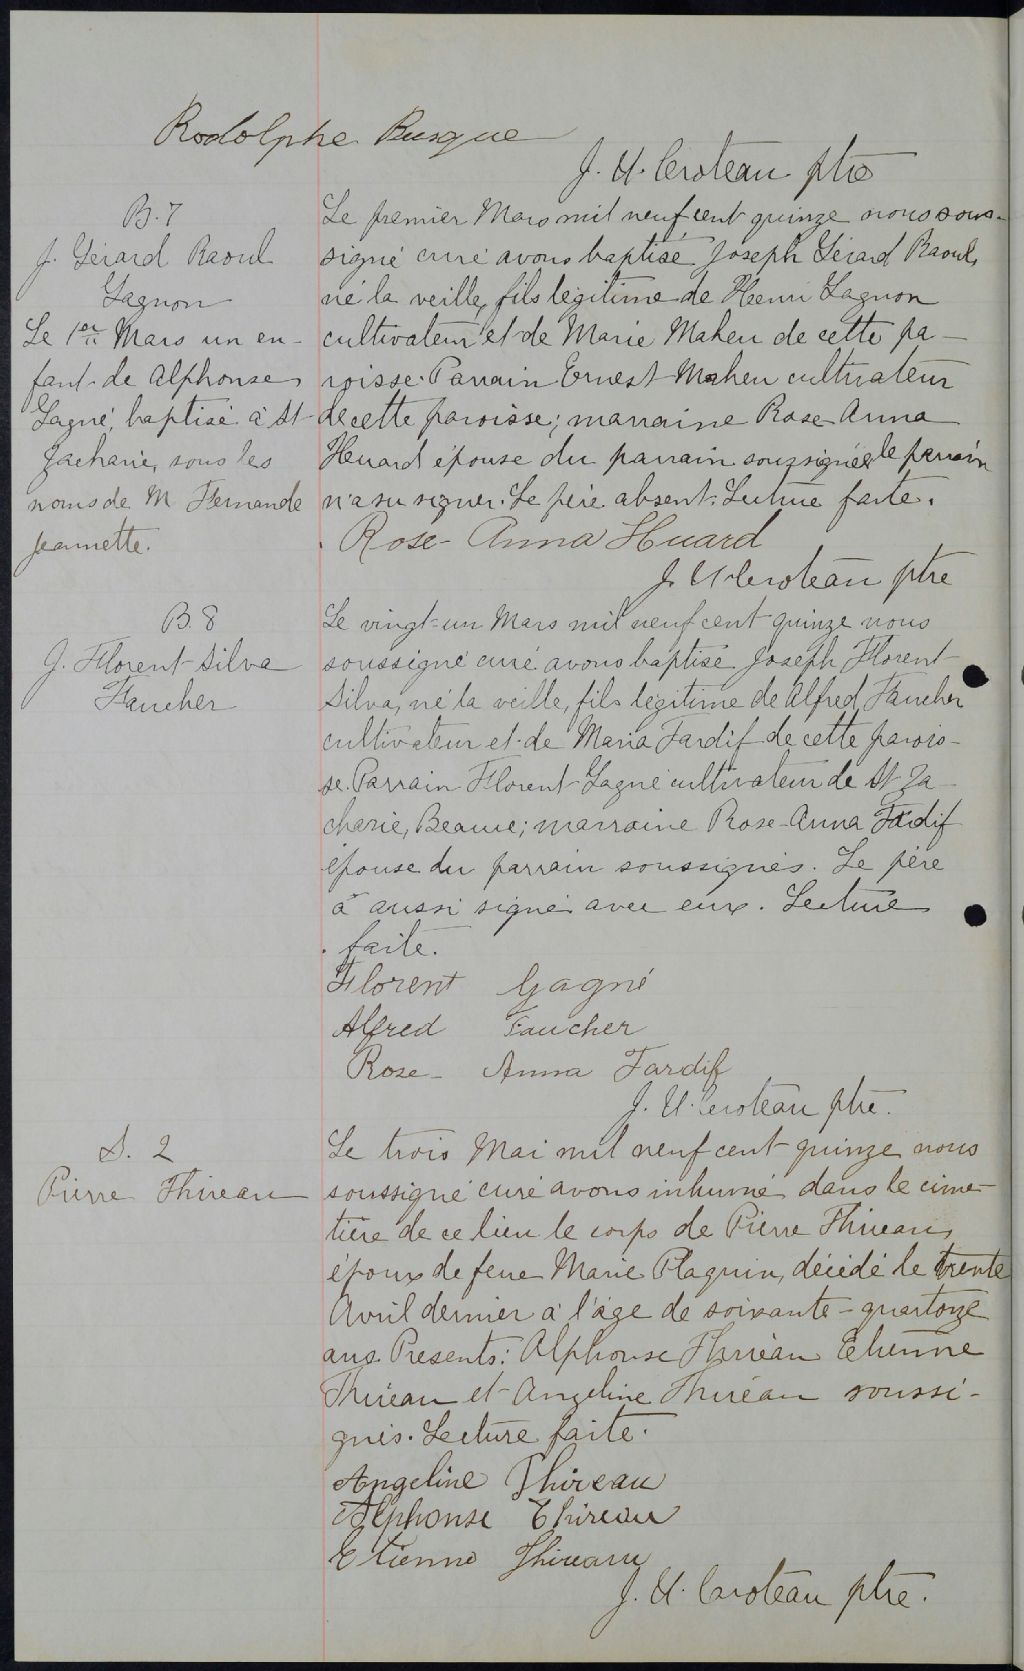 Rodolphe Busque
J. U. Croteau ptre
B. 7
J. Gérard Raoul
Gagnon
Le 1er Mars un en-
fant de Alphonse
Gagné, baptisé à St
Zacharie, sous les
noms de M Fernande
Jeannette.
Le premier Mars mil neuf cent quinze nous sous-
signé curé avons baptisé Joseph Gérard Raoul,
né la veille, fils légitime de Henri Gagnon
cultivateur et de Marie Maheu de cette pa-
roisse. Parrain Ernest Maheu cultivateur
de cette paroisse; marraine Rose-Anna
Huard épouse du parrain soussignée, le parrain
n'a su signer. Le père absent. Lecture faite.
Rose-Anna Huard
J. U. Croteau ptre
B. 8
J. Florent Silva
Faucher
Le vingt-un Mars mil neuf cent quinze nous
soussigné curé avons baptisé Joseph Florent
Silva, né la veille, fils légitime de Alfred Faucher
cultivateur et de Maria Tardif de cette parois-
se. Parrain Florent Gagné cultivateur de St Za-
charie, Beauce; marraine Rose-Anna Tardif
épouse du parrain soussignés. Le père
a aussi signé avec eux. Lecture
faite.
Florent Gagné
Alfred Faucher
Rose-Anna Tardif
J. U. Croteau ptre.
S. 2
Pierre Thireau
Le trois Mai mil neuf cent quinze nous
soussigné curé avons inhumé dans le cime-
tière de ce lieu le corps de Pierre Thireau,
époux de feue Marie Plaquin, décédé le trente
Avril dernier à l'âge de soixante-quartorze
ans. Présents: Alphonse Thiréau Etienne
Thiréau et Angeline Thiréau soussi-
gnés. Lecture faite.
Angeline Thireau
Alphonse Thireau
Etienne Thireau
J. U. Croteau ptre.